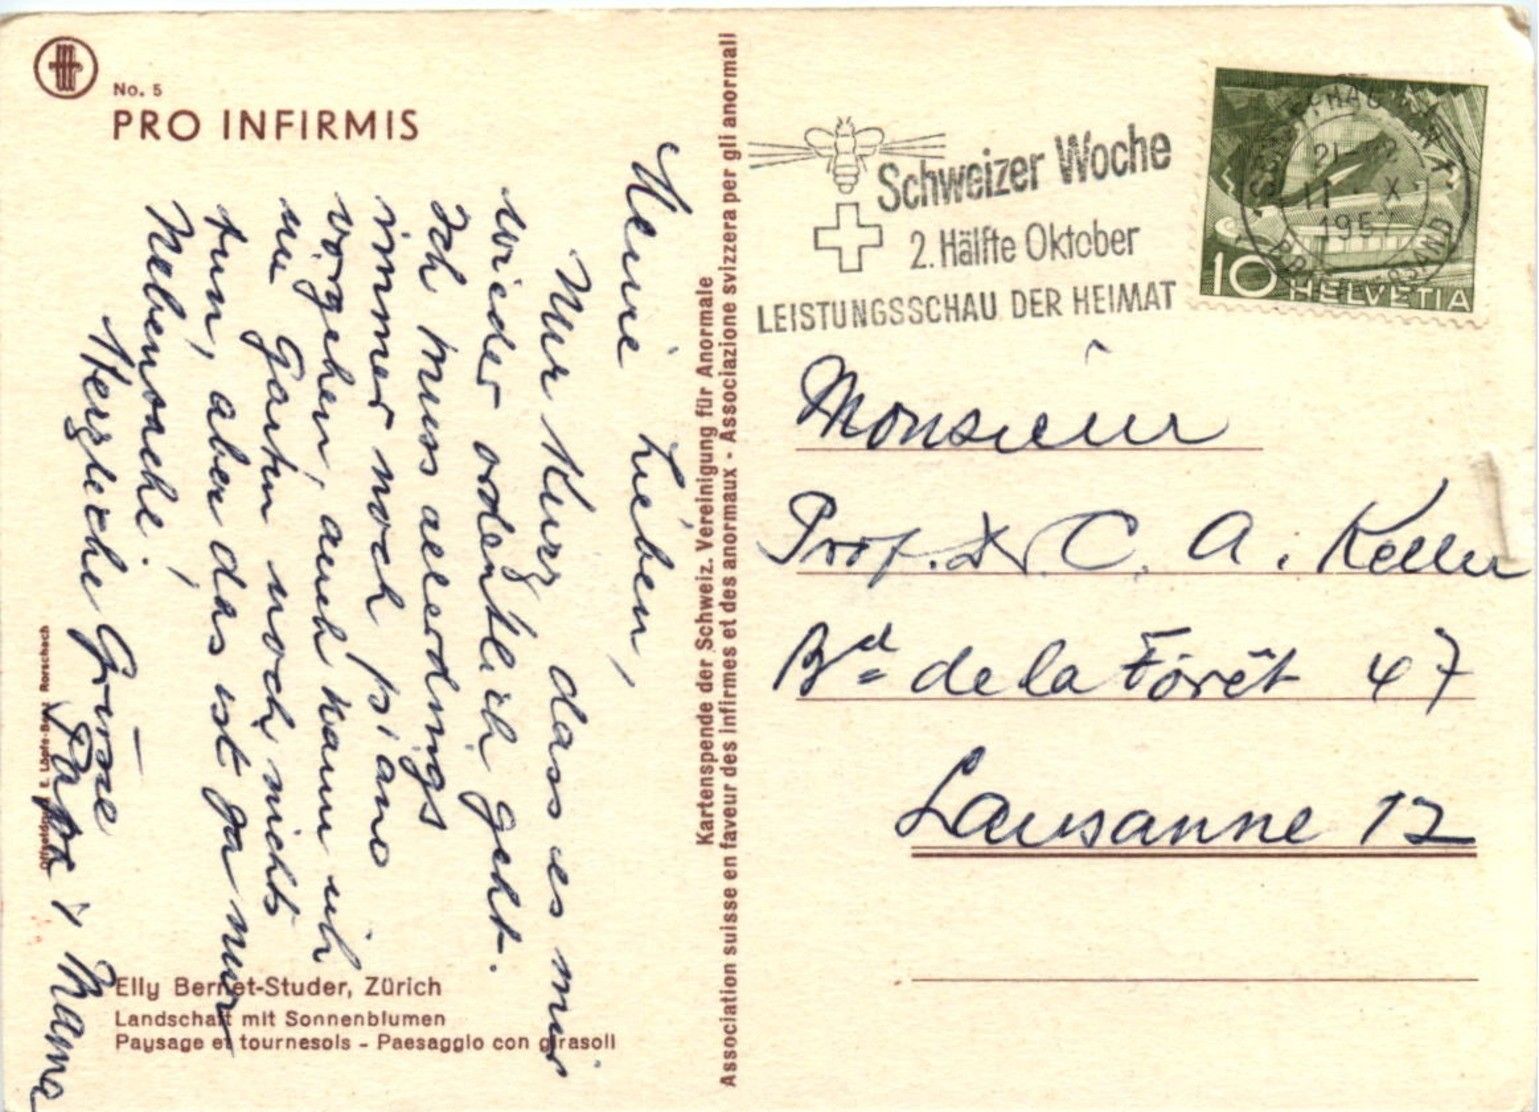 No. 5
PRO INFIRMIS
Meine Lieben,
Nur kurz, dass es mir
wieder ordentlich geht.
Ich muss allerdings
immer noch piano
vorgehen, auch kann ich
im Garten noch nichts
tun, aber das ist ja nur
Nebensache!
Herzliche Grüsse
Papa & Mama
Elly Bernet-Studer, Zürich
Landschaft mit Sonnenblumen
Paysage et tournesols - Paesaggio con girasoli
Offsetdruck E. Löpfe-Benz Rorschach
Kartenspende der Schweiz. Vereinigung für Anormale
Association suisse en faveur des infirmes et des anormaux - Associazione svizzera per gli anormali
Schweizer Woche
2. Hälfte Oktober
LEISTUNGSSCHAU DER HEIMAT
SCHAFFHAUSEN 1
21
11. X.
195
BRIEFVERSAND
10 HELVETIA
Monsieur
Prof. Dr. C. A. Keller
Bd de la Forêt 47
Lausanne 12